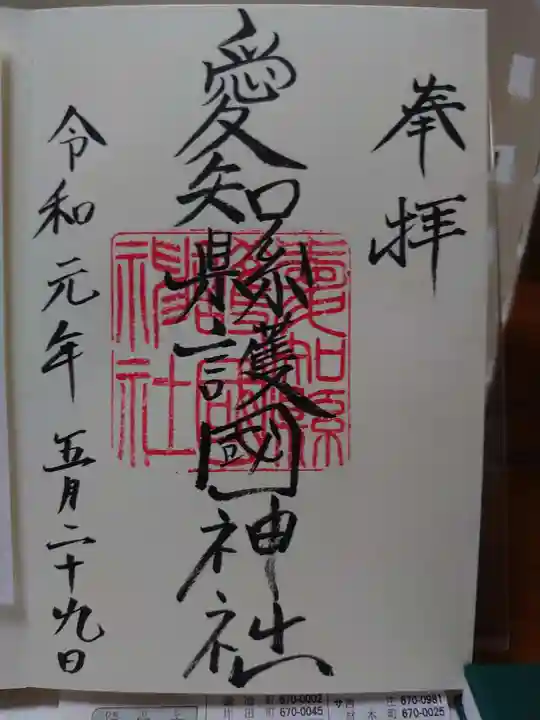 奉拝
愛知縣護國神社
愛知縣
護國
神社
令和元年五月二十九日
町 670-0002
田町 670-0045
サ
670-0981
町 670-0025